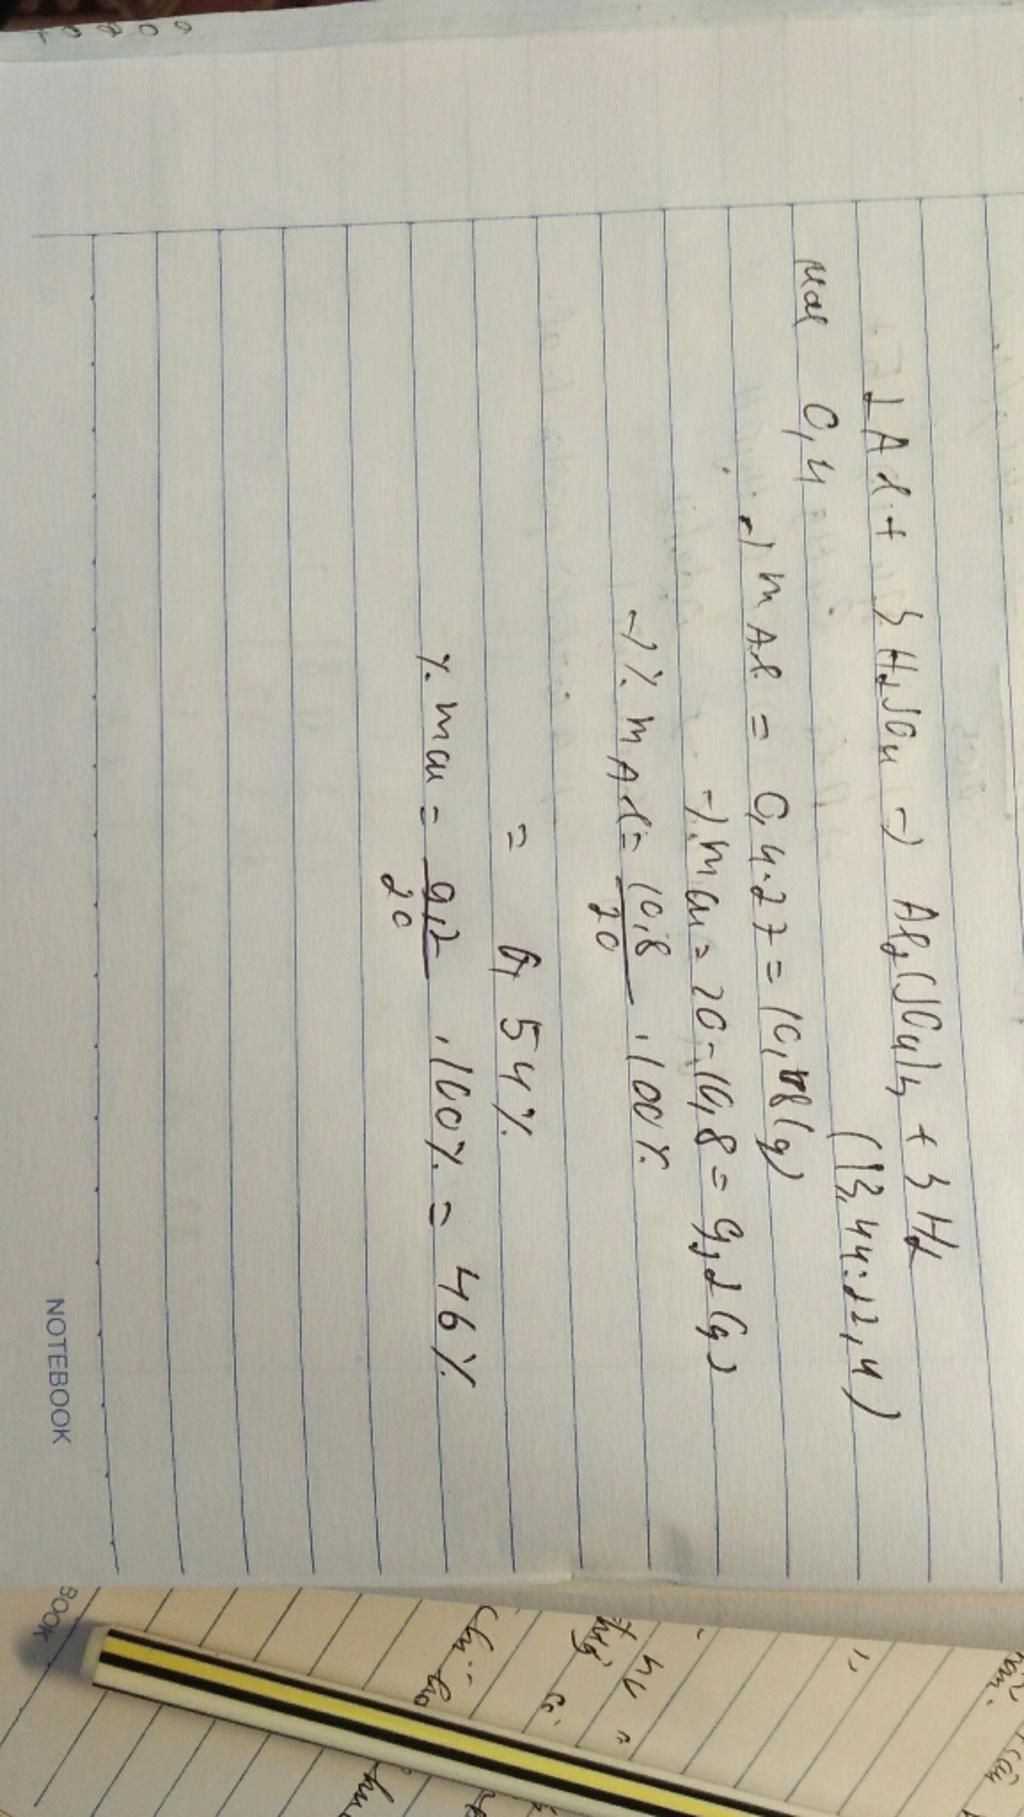 2Al + 3H₂SO₄ -> Al₂(SO₄)₃ + 3H₂
mol 0,4 (13,44:22,4)
-> mAl = 0,4.27 = 10,8(g)
-> mCu = 20-10,8 = 9,2(g)
-> % mAl = 10,8/20 .100%
= 54%
% mCu = 9,2/20 .100% = 46%
NOTEBOOK
BOOK